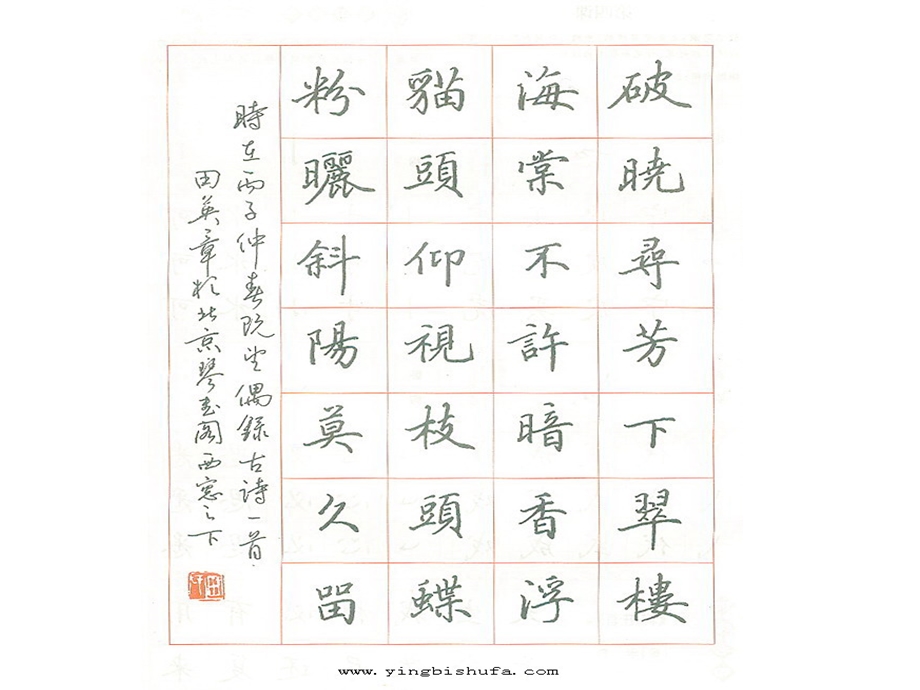 破曉尋芳下翠樓
海棠不許暗香浮
貓頭仰視枝頭蝶
粉曬斜陽莫久留
時在丙子仲春既望偶錄古詩一首
田英章於北京琴書閣西窓之下
www.yingbishufa.com